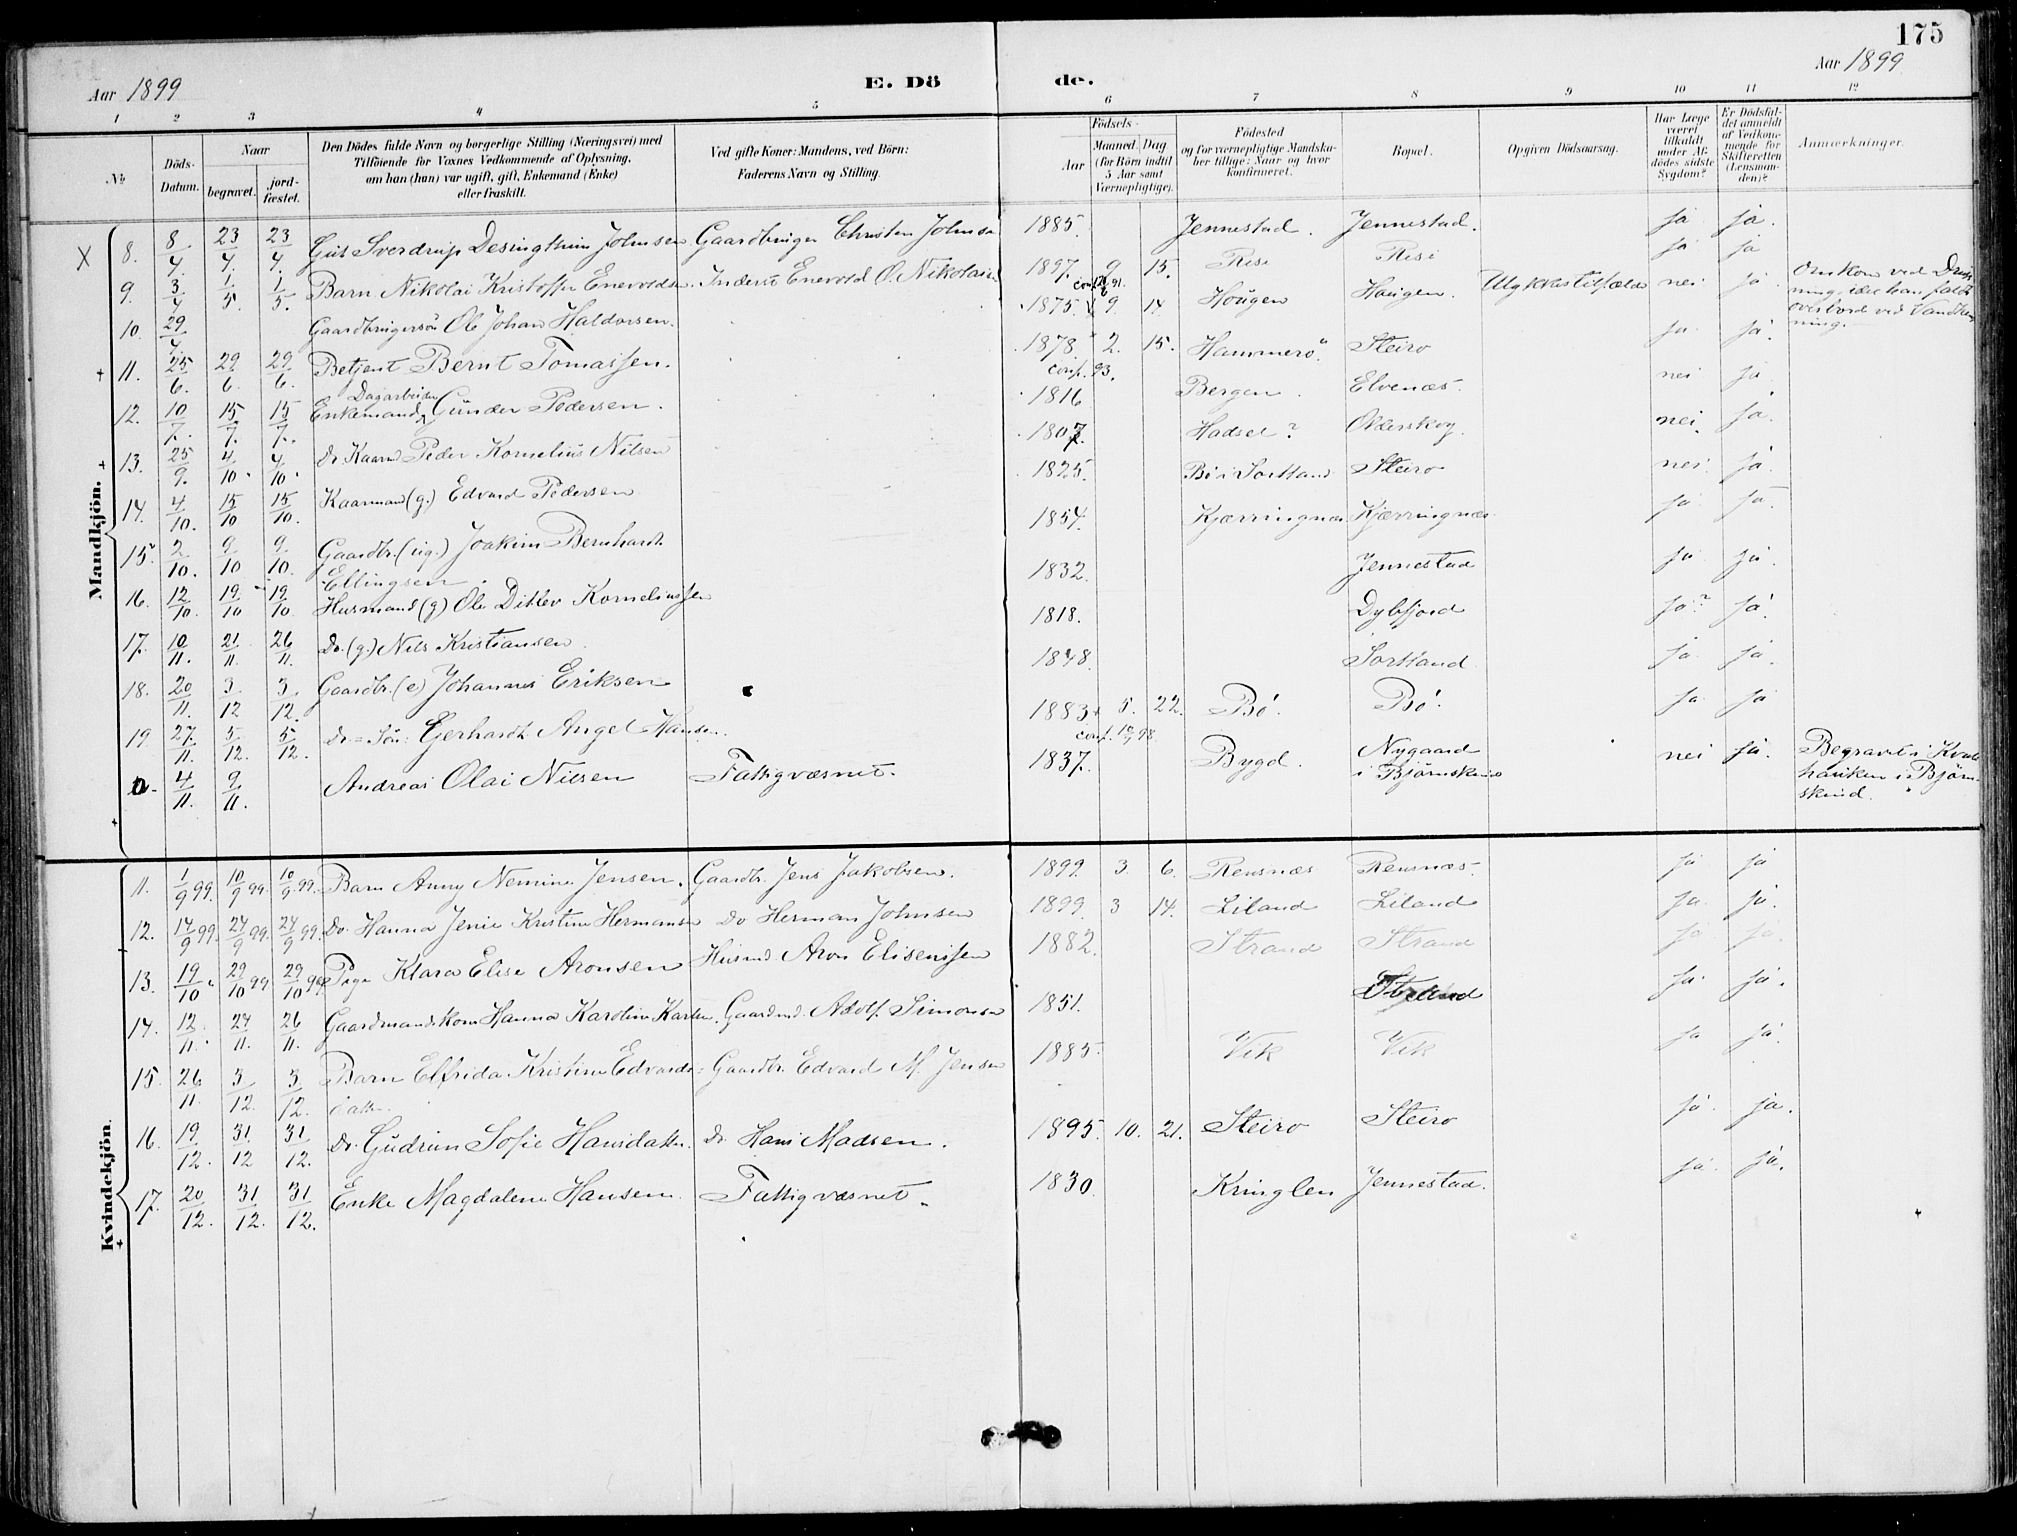 175
Aar 1899
E. Dö de.
Aar 1899
1 2 3 4 5 6 7 8 9 10 11 12
№
Döds-Datum.
Naar begravet. jordfæstet.
Den Dödes fulde Navn og borgerlige Stilling (Næringsvei) med Tilföiende for Voxnes Vedkommende af Oplysning, om han (hun) var ugift, gift, Enkemand (Enke) eller fraskilt.
Ved gifte Koner: Mandens, ved Börn: Faderens Navn og Stilling.
Födsels- Aar Maaned. Dag (for Börn indtil 5 Aar samt Værnepligtige).
Födested og for værnepligtige Mandskaber tillige: Naar og hvor konfirmeret.
Bopæl.
Opgiven Dödsaarsag.
Har Læge været tilkaldt under Afdödes sidste Sygdom?
Er Dödsfaldet anmeldt af Vedkommende for Skifteretten (Lensmanden)?
Anmærkninger.
Mandkjön.
X 8. 8/4 23/4. 23/4. Gut Sverdrup Johnsen Gaardbruger Christen Johnsen 1885. Jennestad. Jennestad. ja ja.
9. 3/4 1/5. 1/5. Barn Nikolai Kristoffer Enevoldsen. Inderst Enevold O. Nikolaisen 1897. 9 15. Risö Risö ja ja
10. 29/4. Gaardbrugersön Ole Johan Haldorsen. 1875. 9. 14 Haugen Haugen. Ulykkestilfælde nei ja Omkom ved Drukning, idet han faldt overbord ved
11. 25/6. 29/6. 29/6. Betjent Bernt Tomassen. 1878. 2. 15. conf. 93. Hammerö. Steiro ja. ja.
12. 10/7. 15/7. 15/7. Enkemand, Dagarbeider Günder Pedersen. 1816 Bergen. Elvenæs. nei ja
13. 25/9. 4/10. 4/10. Do. Kaarm Peder Kornelius Nilsen 1807. Hadsel? Olderskog. nei. ja.
14. 4/10. 15/10 15/10. Kaarmand (g.) Edvard Pedersen 1825. Bö i Sortland Steiro nei. ja.
15. 2/10. 9/10 9/10. Gaardbr. (ug.) Joakim Bernhardt Ellingsen 1854. Kjærringnæs Kjærringnæs. ja. ja.
16. 12/10. 19/10 19/10. Husmand (g) Ole Ditlev Korneliussen 1832. Jennestad ja ja.
17. 10/11. 21/11. 26/11. Do. (g.) Nils Kristiansen. 1818. Dybfjord ja? ja.
18. 20/11. 3/12 3/12. Gaardbr. (e) Johannes Eriksen 1848. Sortland. ja. ja.
19 27/11. 5/12. 5/12. Do = Sön: Gerhardt Angel Hansen. 1883. 5. 22. conf. 98. Bö. Bö. ja. ja
0. 4/11. 9/11. Andreas Olai Nilsen Fattigvæsnet. 1837. Bygd. Nygaard i Bjørnskind nei ja. Begravet i i Bjørnskind.
Kvindekjön.
11. 1/9 99. 10/9 99. 10/9 99. Barn Anny Nemine Jensen. Gaardbr. Jens Jakobsen. 1899. 3. 6. Rensnæs Rensnæs. ja ja
12. 14/9 99. 24/9 99. 24/9 99. Do. Hanna Jenie Kristine Hermansen Do Herman Johnsen 1899. 3 14. Liland Liland ja. ja.
13. 19/10 29/10 99 29/10 99 Pige Klara Elise Aronsen Husmd. Aron Elisenssen 1882. Strand Strand ja ja.
14. 12/11. 24/11. 26/11. Gaardmandskone Hanna Karoline Gaardmd. Adolf Simonsen 1851. Strand ja. ja.
15. 26/11. 3/12. 3/12. Barn Elfrida Kristine Edvards= datter. Gaardbr. Edvard M. Jensen 1885. Vik Vik ja ja.
16. 19/12. 31/12 31/12. Do. Gudrun Sofie Hansdatter. Do. Hans Madsen. 1895. 10. 21. Steiro Steiro ja. ja.
17. 20/12. 31/12. 31/12. Enke Magdalene Hansen Fattigvæsnet. 1830. Kringlen Jennestad. ja. ja.